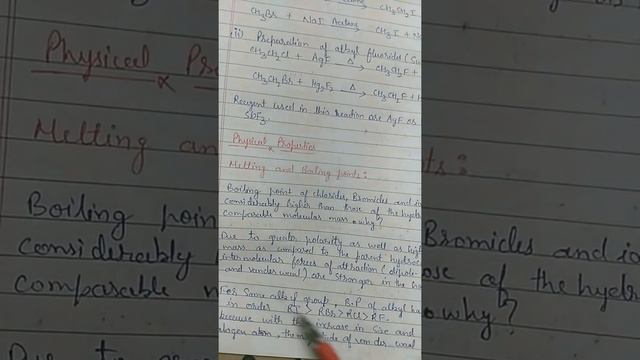 CH₃CH₂I
CH₃Br + NaI Acetone → CH₃I + Na
(ii) Preparation of alkyl fluorides (Sw
CH₃CH₂Cl + AgF Δ → CH₃CH₂F +
CH₃CH₂Br + Hg₂F₂ Δ → CH₃CH₂F + H
Reagent used in this reaction are AgF or
SbF₃.
Physical Properties
Melting and Boiling points:
Boiling point of chlorides, Bromides and io
considerably higher than those of the hydr
comparable molecular mass. why?
Due to greater polarity as well as high
mass as compared to the parent hydroc
intermolecular forces of attraction (dipole-
and vander waal) are stronger in the
For Same alkyl group, B.P of alkyl ha
in order RI > RBr > RCl > RF.
because with the increase in Size and
alogen atom, the magnitude of vander waal